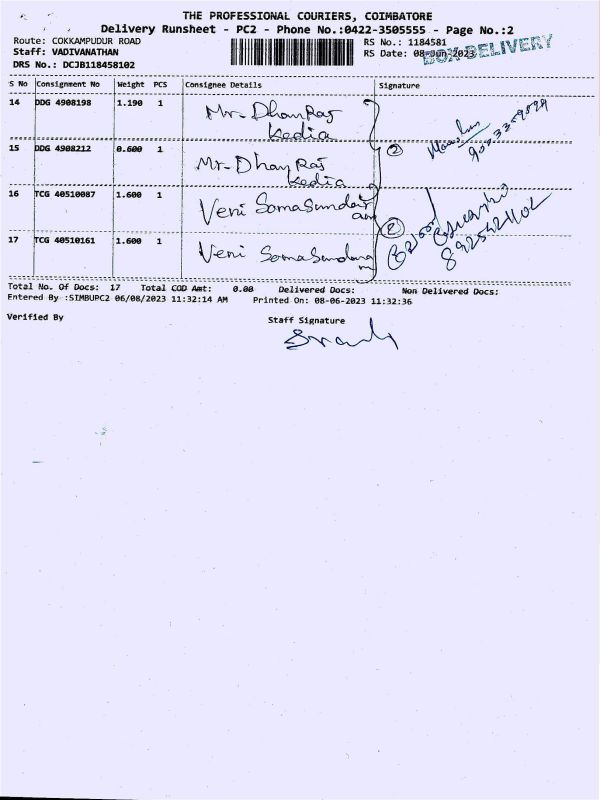 THE PROFESSIONAL COURIERS, COIMBATORE
Delivery Runsheet - PC2 - Phone No.:0422-3505555 - Page No.:2
Route: COKKAMPUDUR ROAD
RS No.: 1184581
Staff: VADIVANATHAN
RS Date: 08-Jun-2023
BOX DELIVERY
DRS No.: DCJB118458102
S No Consignment No Weight PCS Consignee Details Signature
14 DDG 4908198 1.190 1 Mr. Dhan Raj
Kedia
15 DDG 4908212 0.600 1 Mr. Dhan Raj
Kedia
2
16 TCG 40510087 1.600 1 Veni Somasundar
am
17 TCG 40510161 1.600 1 Veni Somasundara
m
2
8925421102
Total No. Of Docs: 17 Total COD Amt: 0.00 Delivered Docs: Non Delivered Docs:
Entered By :SIMBUPC2 06/08/2023 11:32:14 AM Printed On: 08-06-2023 11:32:36
Verified By
Staff Signature